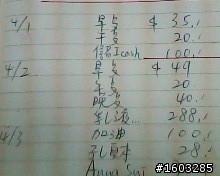 4/1 早餐 $ 35.
午餐 20.
儲Icash 100.
4/2 早餐 $ 49
午餐 20
晚餐 40.
288.
4/3 加油 100.
28.
Anna Sui
#1603285